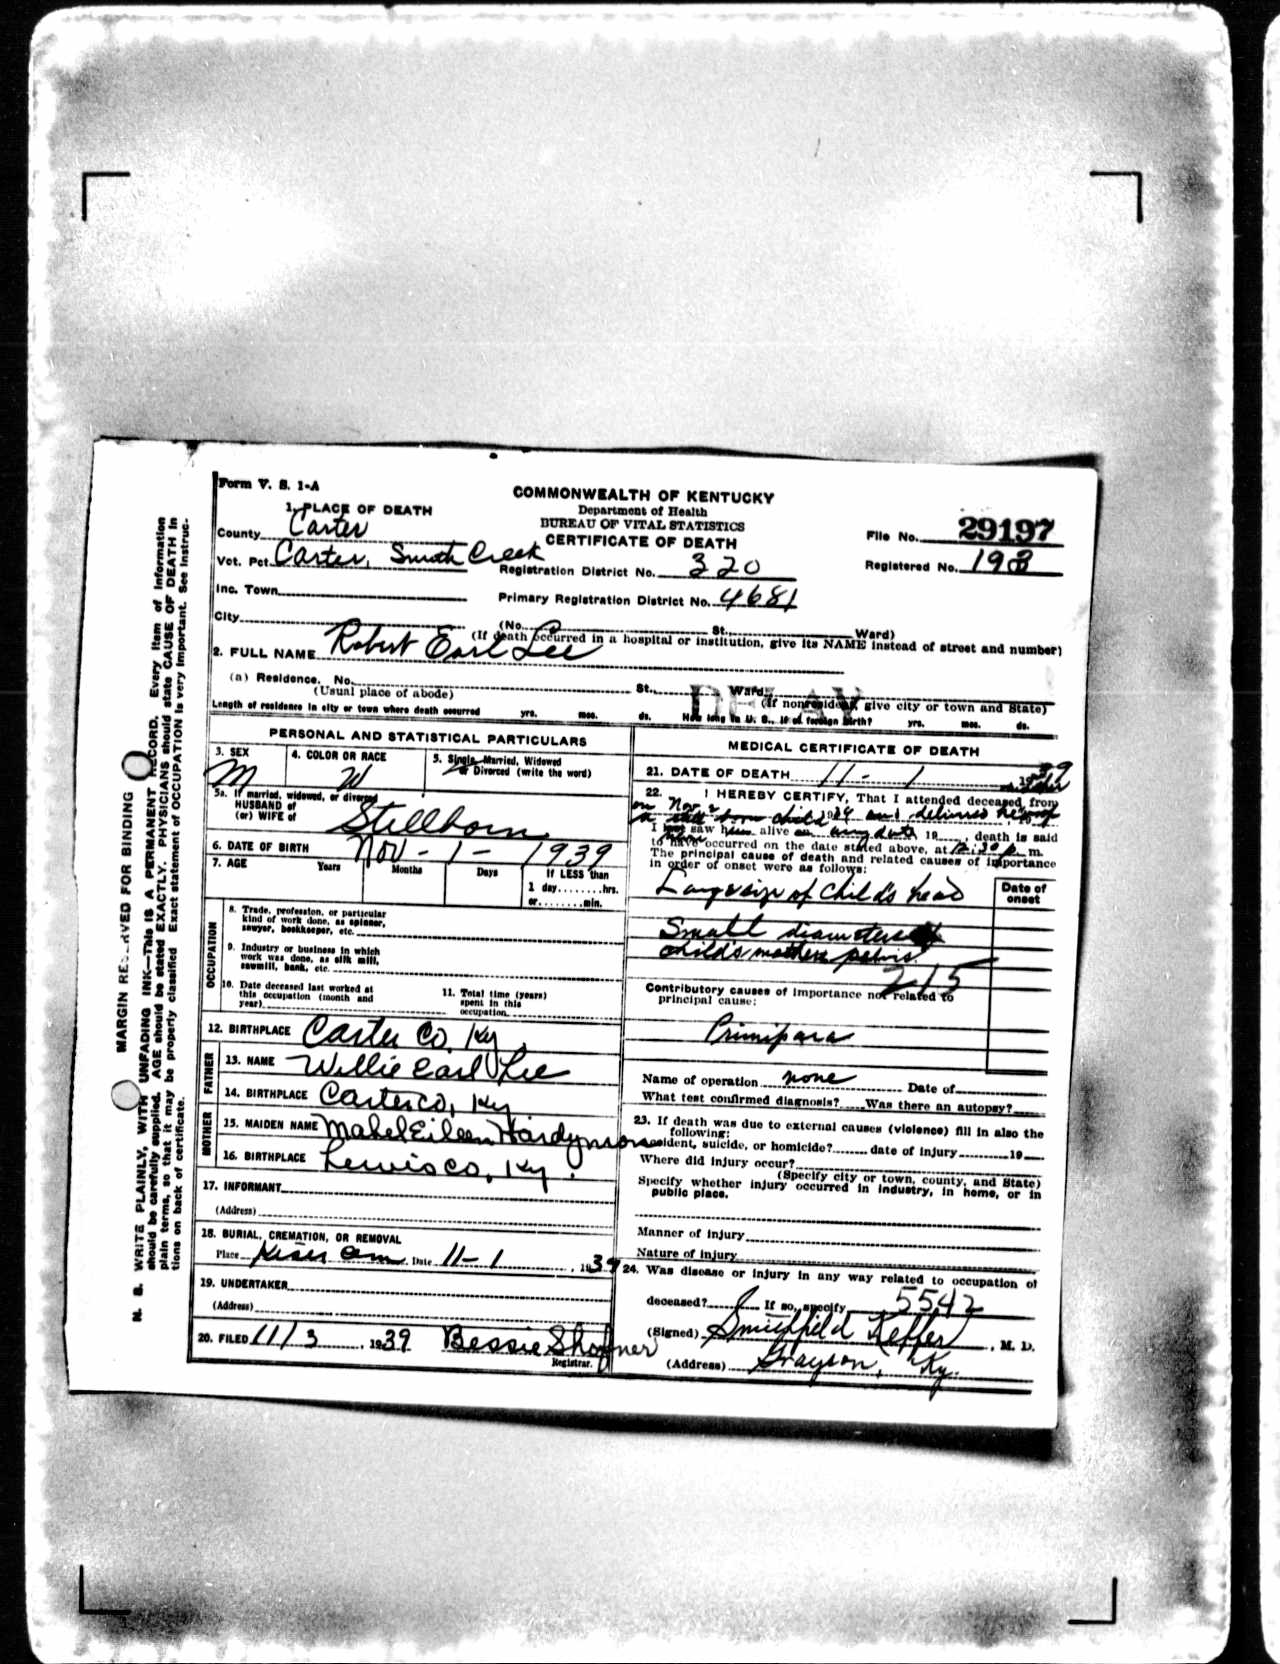 Form V. S. 1-A
COMMONWEALTH OF KENTUCKY
Department of Health
BUREAU OF VITAL STATISTICS
CERTIFICATE OF DEATH
1. PLACE OF DEATH
County Carter
Vot. Pct. Carter, Smith Creek
Inc. Town
City
Registration District No. 320
Primary Registration District No. 4681
File No. 29197
Registered No. 198
(No. St. Ward)
(If death occurred in a hospital or institution, give its NAME instead of street and number)
2. FULL NAME Robert Earl Lee
(a) Residence. No. St. Ward.
(Usual place of abode) (If nonresident, give city or town and State)
DELAY
Length of residence in city or town where death occurred yrs. mos. ds. How long in U. S., if of foreign birth? yrs. mos. ds.
PERSONAL AND STATISTICAL PARTICULARS
3. SEX M
4. COLOR OR RACE W
5. Single, Married, Widowed or Divorced (write the word)
5a. If married, widowed, or divorced
HUSBAND of
(or) WIFE of
Stillborn
6. DATE OF BIRTH Nov - 1 - 1939
7. AGE Years Months Days If LESS than
1 day........hrs.
or........min.
OCCUPATION
8. Trade, profession, or particular
kind of work done, as spinner,
sawyer, bookkeeper, etc.
9. Industry or business in which
work was done, as silk mill,
sawmill, bank, etc.
10. Date deceased last worked at
this occupation (month and
year)
11. Total time (years)
spent in this
occupation
12. BIRTHPLACE Carter Co. Ky.
FATHER
13. NAME Willie Earl Lee
14. BIRTHPLACE Carter Co, Ky
MOTHER
15. MAIDEN NAME Mabel Eileen Hardymson
16. BIRTHPLACE Lewis Co, Ky.
17. INFORMANT
(Address)
18. BURIAL, CREMATION, OR REMOVAL
Place Kiser Cem. Date 11-1, 1939
19. UNDERTAKER
(Address)
20. FILED 11/3, 1939 Bessie Shofner
Registrar.
MEDICAL CERTIFICATE OF DEATH
21. DATE OF DEATH 11 - 1 1939
22. I HEREBY CERTIFY, That I attended deceased from
on Nov
a still born child and delivered her of
I saw h alive on any date 19, death is said
to have occurred on the date stated above, at 12:30 p. m.
The principal cause of death and related causes of importance
in order of onset were as follows:
Date of onset
Large size of child's head
Small diameters
child's mothers pelvis
215
Contributory causes of importance not related to
principal cause:
Primipara
Name of operation none Date of
What test confirmed diagnosis? Was there an autopsy?
23. If death was due to external causes (violence) fill in also the
following:
Accident, suicide, or homicide? date of injury 19
Where did injury occur?
(Specify city or town, county, and State)
Specify whether injury occurred in industry, in home, or in
public place.
Manner of injury
Nature of injury
24. Was disease or injury in any way related to occupation of
deceased? If so, specify 5542
(Signed) Smithfield Keffer, M. D.
(Address) Grayson, Ky.
MARGIN RESERVED FOR BINDING
N. B. WRITE PLAINLY, WITH UNFADING INK—THIS IS A PERMANENT RECORD. Every item of information
should be carefully supplied. AGE should be stated EXACTLY. PHYSICIANS should state CAUSE OF DEATH in
plain terms, so that it may be properly classified. Exact statement of OCCUPATION is very important. See instruc-
tions on back of certificate.